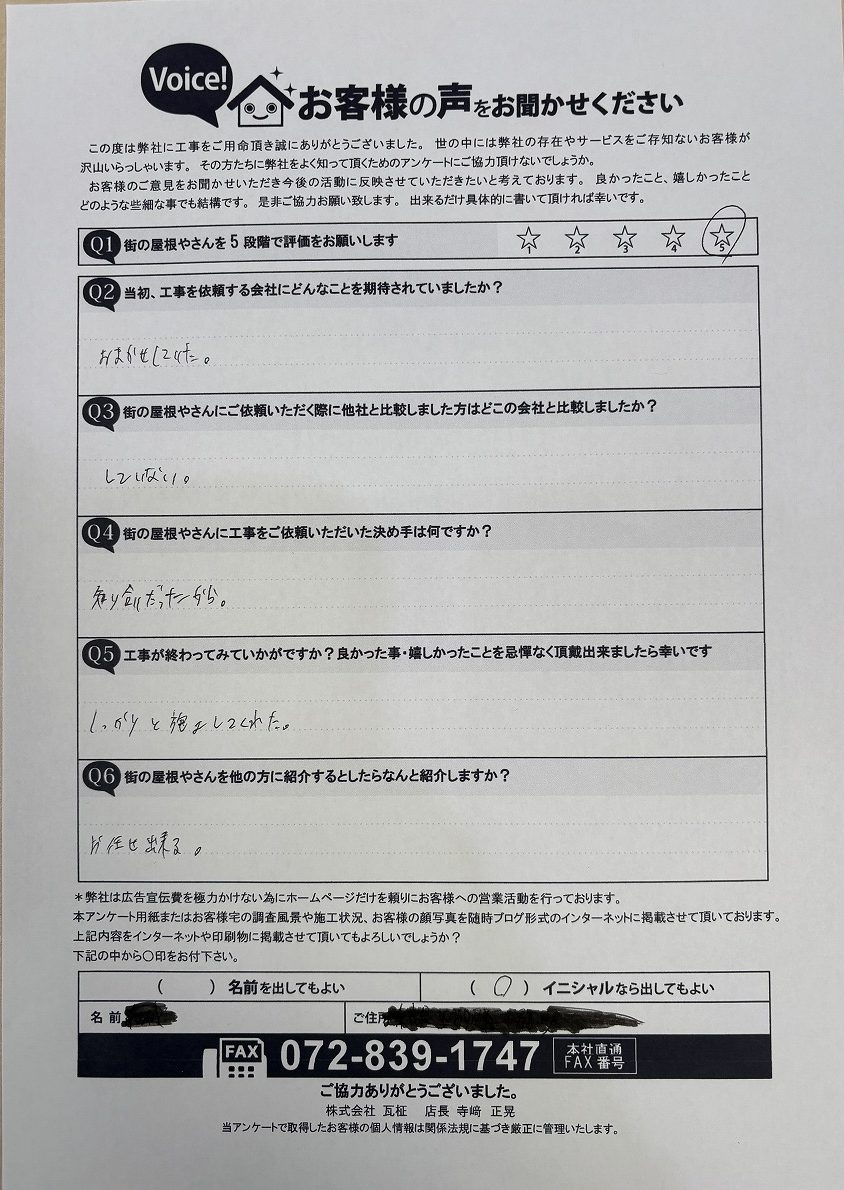 Voice!
お客様の声をお聞かせください
この度は弊社に工事をご用命頂き誠にありがとうございました。 世の中には弊社の存在やサービスをご存知ないお客様が
沢山いらっしゃいます。 その方たちに弊社をよく知って頂くためのアンケートにご協力頂けないでしょうか。
お客様のご意見をお聞かせいただき今後の活動に反映させていただきたいと考えております。 良かったこと、嬉しかったこと
どのような些細な事でも結構です。 是非ご協力お願い致します。 出来るだけ具体的に書いて頂ければ幸いです。
Q1 街の屋根やさんを5段階で評価をお願いします ☆1 ☆2 ☆3 ☆4 ☆5
Q2 当初、工事を依頼する会社にどんなことを期待されていましたか？
おまかせしていた。
Q3 街の屋根やさんにご依頼いただく際に他社と比較しました方はどこの会社と比較しましたか？
していない。
Q4 街の屋根やさんに工事をご依頼いただいた決め手は何ですか？
知り合いだったから。
Q5 工事が終わってみていかがですか？良かった事・嬉しかったことを忌憚なく頂戴出来ましたら幸いです
しっかりと施工してくれた。
Q6 街の屋根やさんを他の方に紹介するとしたらなんと紹介しますか？
お任せ出来る。
＊弊社は広告宣伝費を極力かけない為にホームページだけを頼りにお客様への営業活動を行っております。
本アンケート用紙またはお客様宅の調査風景や施工状況、お客様の顔写真を随時ブログ形式のインターネットに掲載させて頂いております。
上記内容をインターネットや印刷物に掲載させて頂いてもよろしいでしょうか？
下記の中から〇印をお付下さい。
（　　）名前を出してもよい （ 〇 ）イニシャルなら出してもよい
名前 ご住所
FAX 072-839-1747 本社直通 FAX番号
ご協力ありがとうございました。
株式会社 瓦柾 店長 寺﨑 正晃
当アンケートで取得したお客様の個人情報は関係法規に基づき厳正に管理いたします。